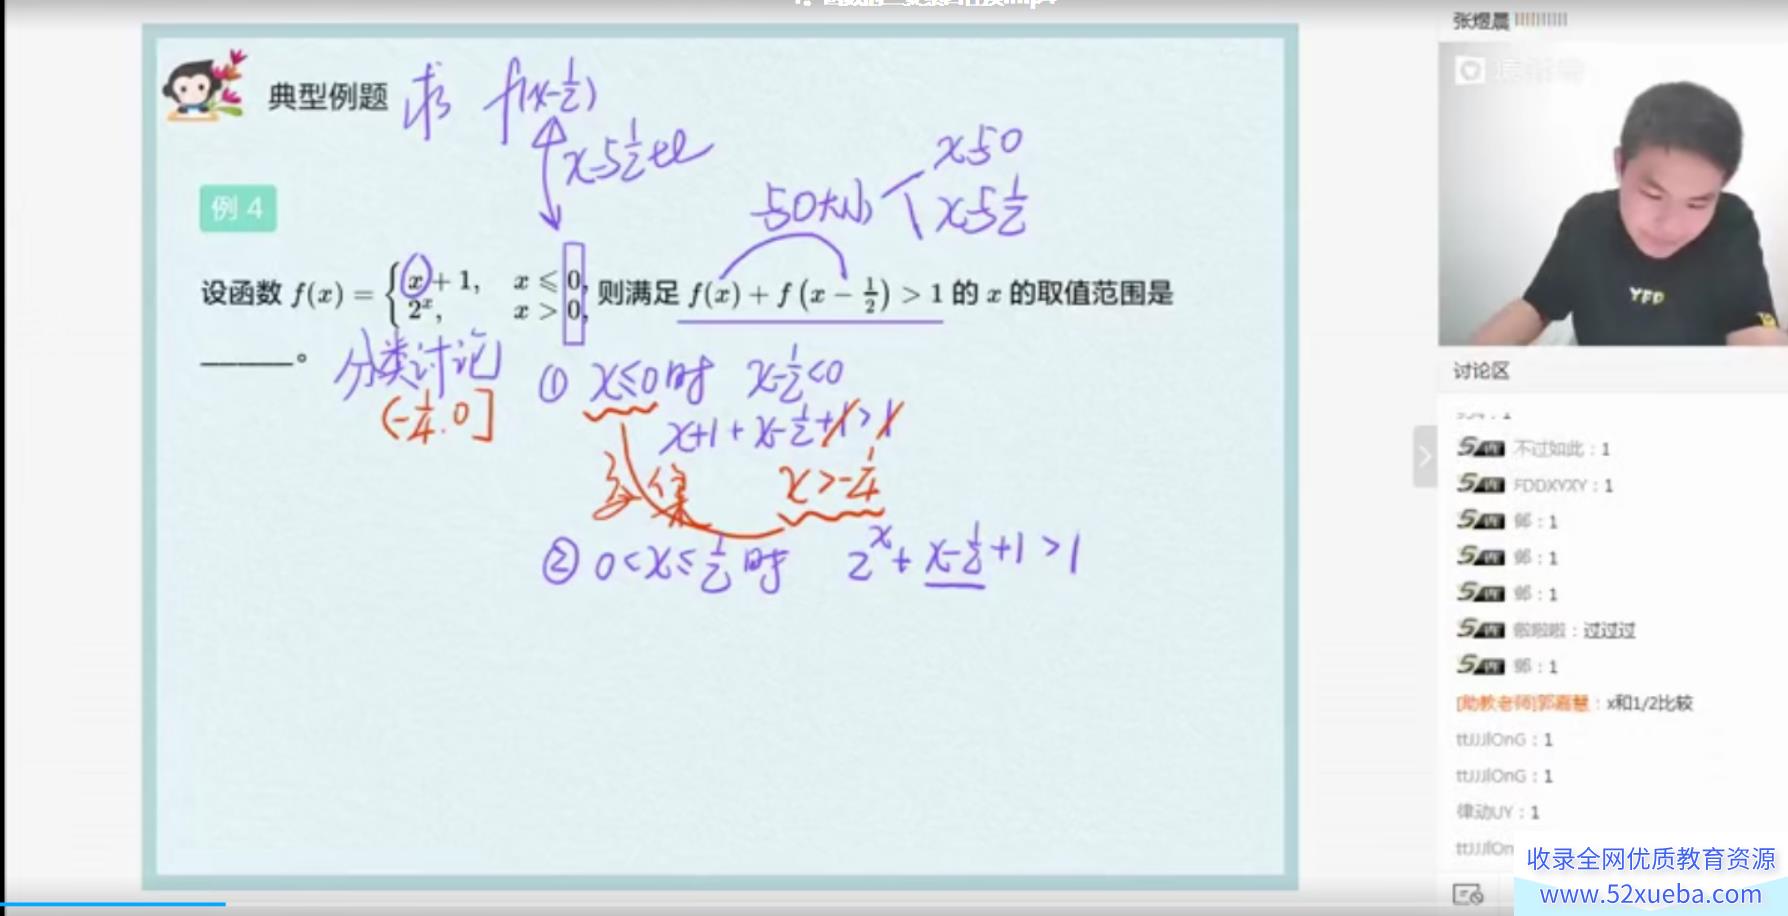 张煜晨
典型例题 求 f(x-1/2)
x与1/2比
x与0
与0大小
x与1/2
例 4
设函数 f(x) = { x + 1, x ⩽ 0, 2^x, x > 0, 则满足 f(x) + f(x − 1/2) > 1 的 x 的取值范围是
______。
分类讨论
① x≤0时 x-1/2<0
(-1/4,0]
x+1+x-1/2+1>1
交集 x>-1/4
② 0<x≤1/2时 2^x+x-1/2+1>1
YFD
讨论区
不过如此：1
FDDXYXY：1
郷：1
郷：1
郷：1
啦啦啦：过过过
郷：1
[助教老师]郭嘉慧：x和1/2比较
ttJJJlOnG：1
ttJJJlOnG：1
律动UY：1
ttJJJlOn
收录全网优质教育资源
www.52xueba.com